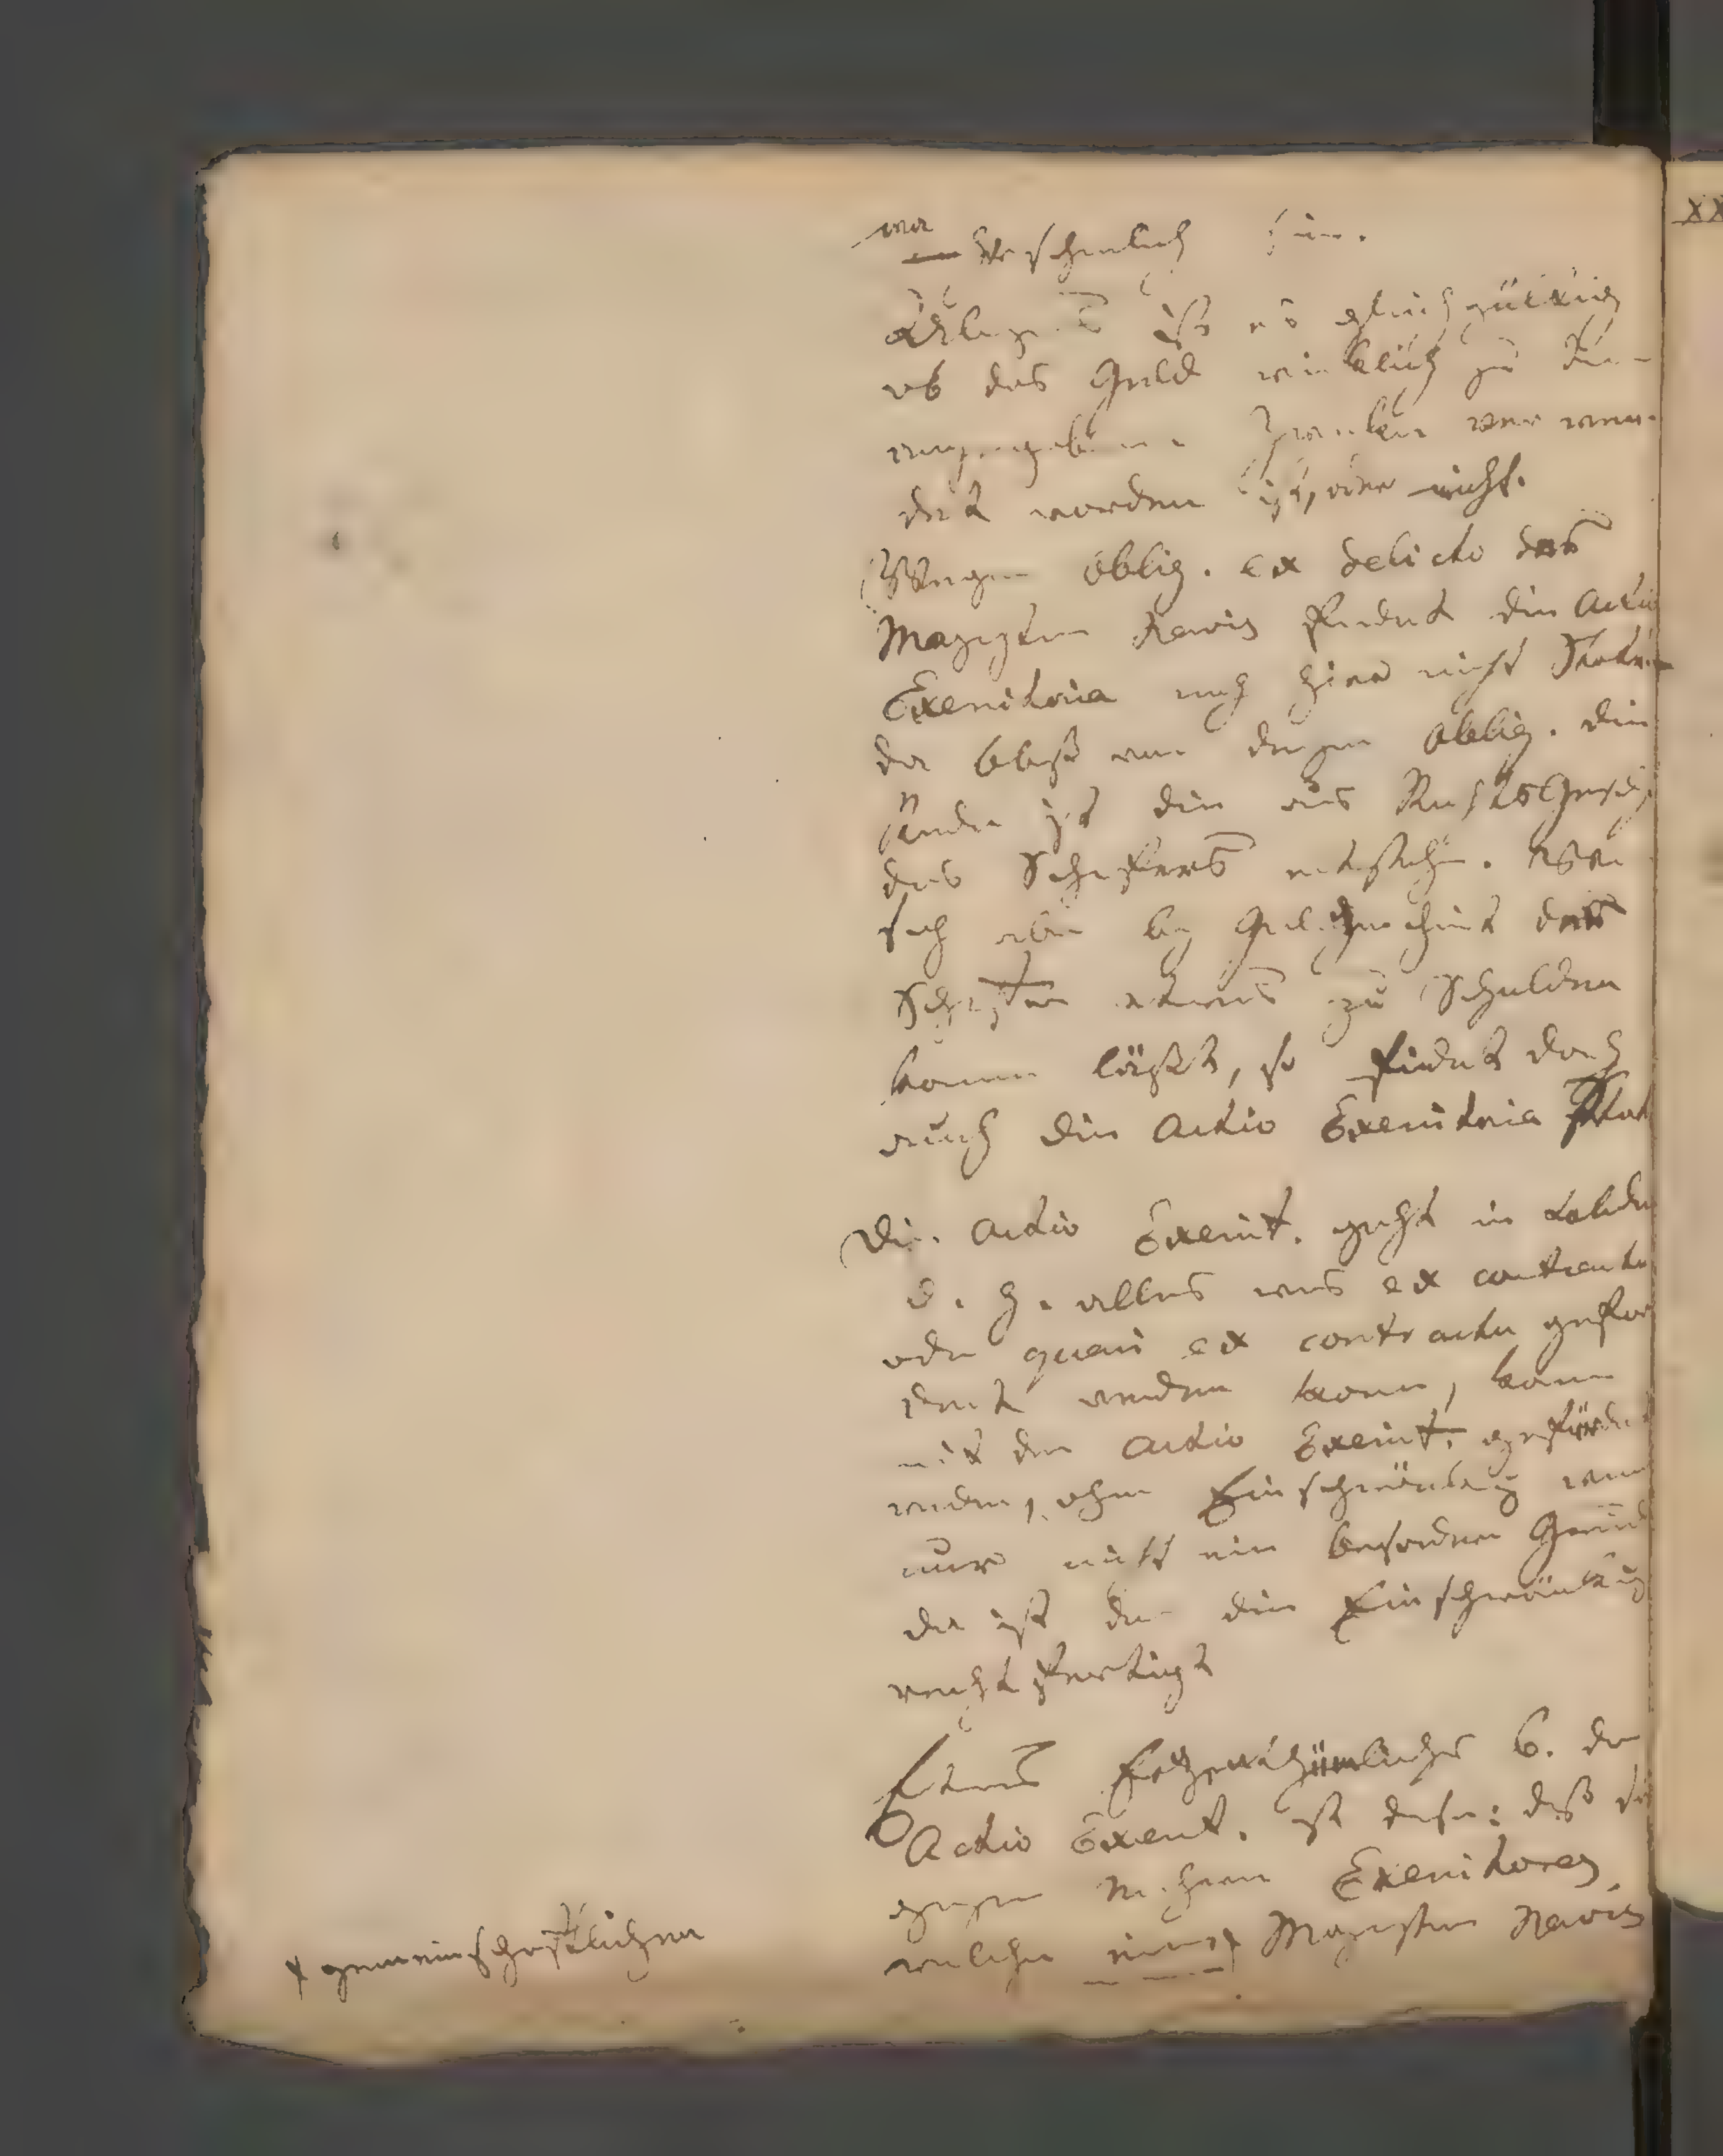 ist es gleichgültig
ob das Geld wirklich zu dem
angegebenen Zwecken verwen-
det worden ist, oder nicht.
Wegen oblig. ex delicto des
Magister navis findet die Actio
Exercitoria auch hier nicht Statt
da bloß von denjen oblig. die
Rede ist die aus Rechtsgesch.
des Schiffers entstehn. Wen
sich aber bey Gelegenheit des
etwas zu Schulden
kommen läßt, so findet doch
auch die Actio Exercitoria Statt
Die Actio Exercit. geht in solidum
d. h. alles was ex contractu
oder quasi ex contractu gefor
dert werden kann, kann
mit der Actio Exercit. gefordert
werden, ohne Einschränkung wenn
nur nicht ein besonderer Grund
da ist der die Einschränkung
rechtfertigt
Etwas Eigenthümliches b. der
Actio Exercit. ist dieses: daß sie
gegen mehrere Exercitores,
welche einen Magister navis
+ gemeinschaftlichen